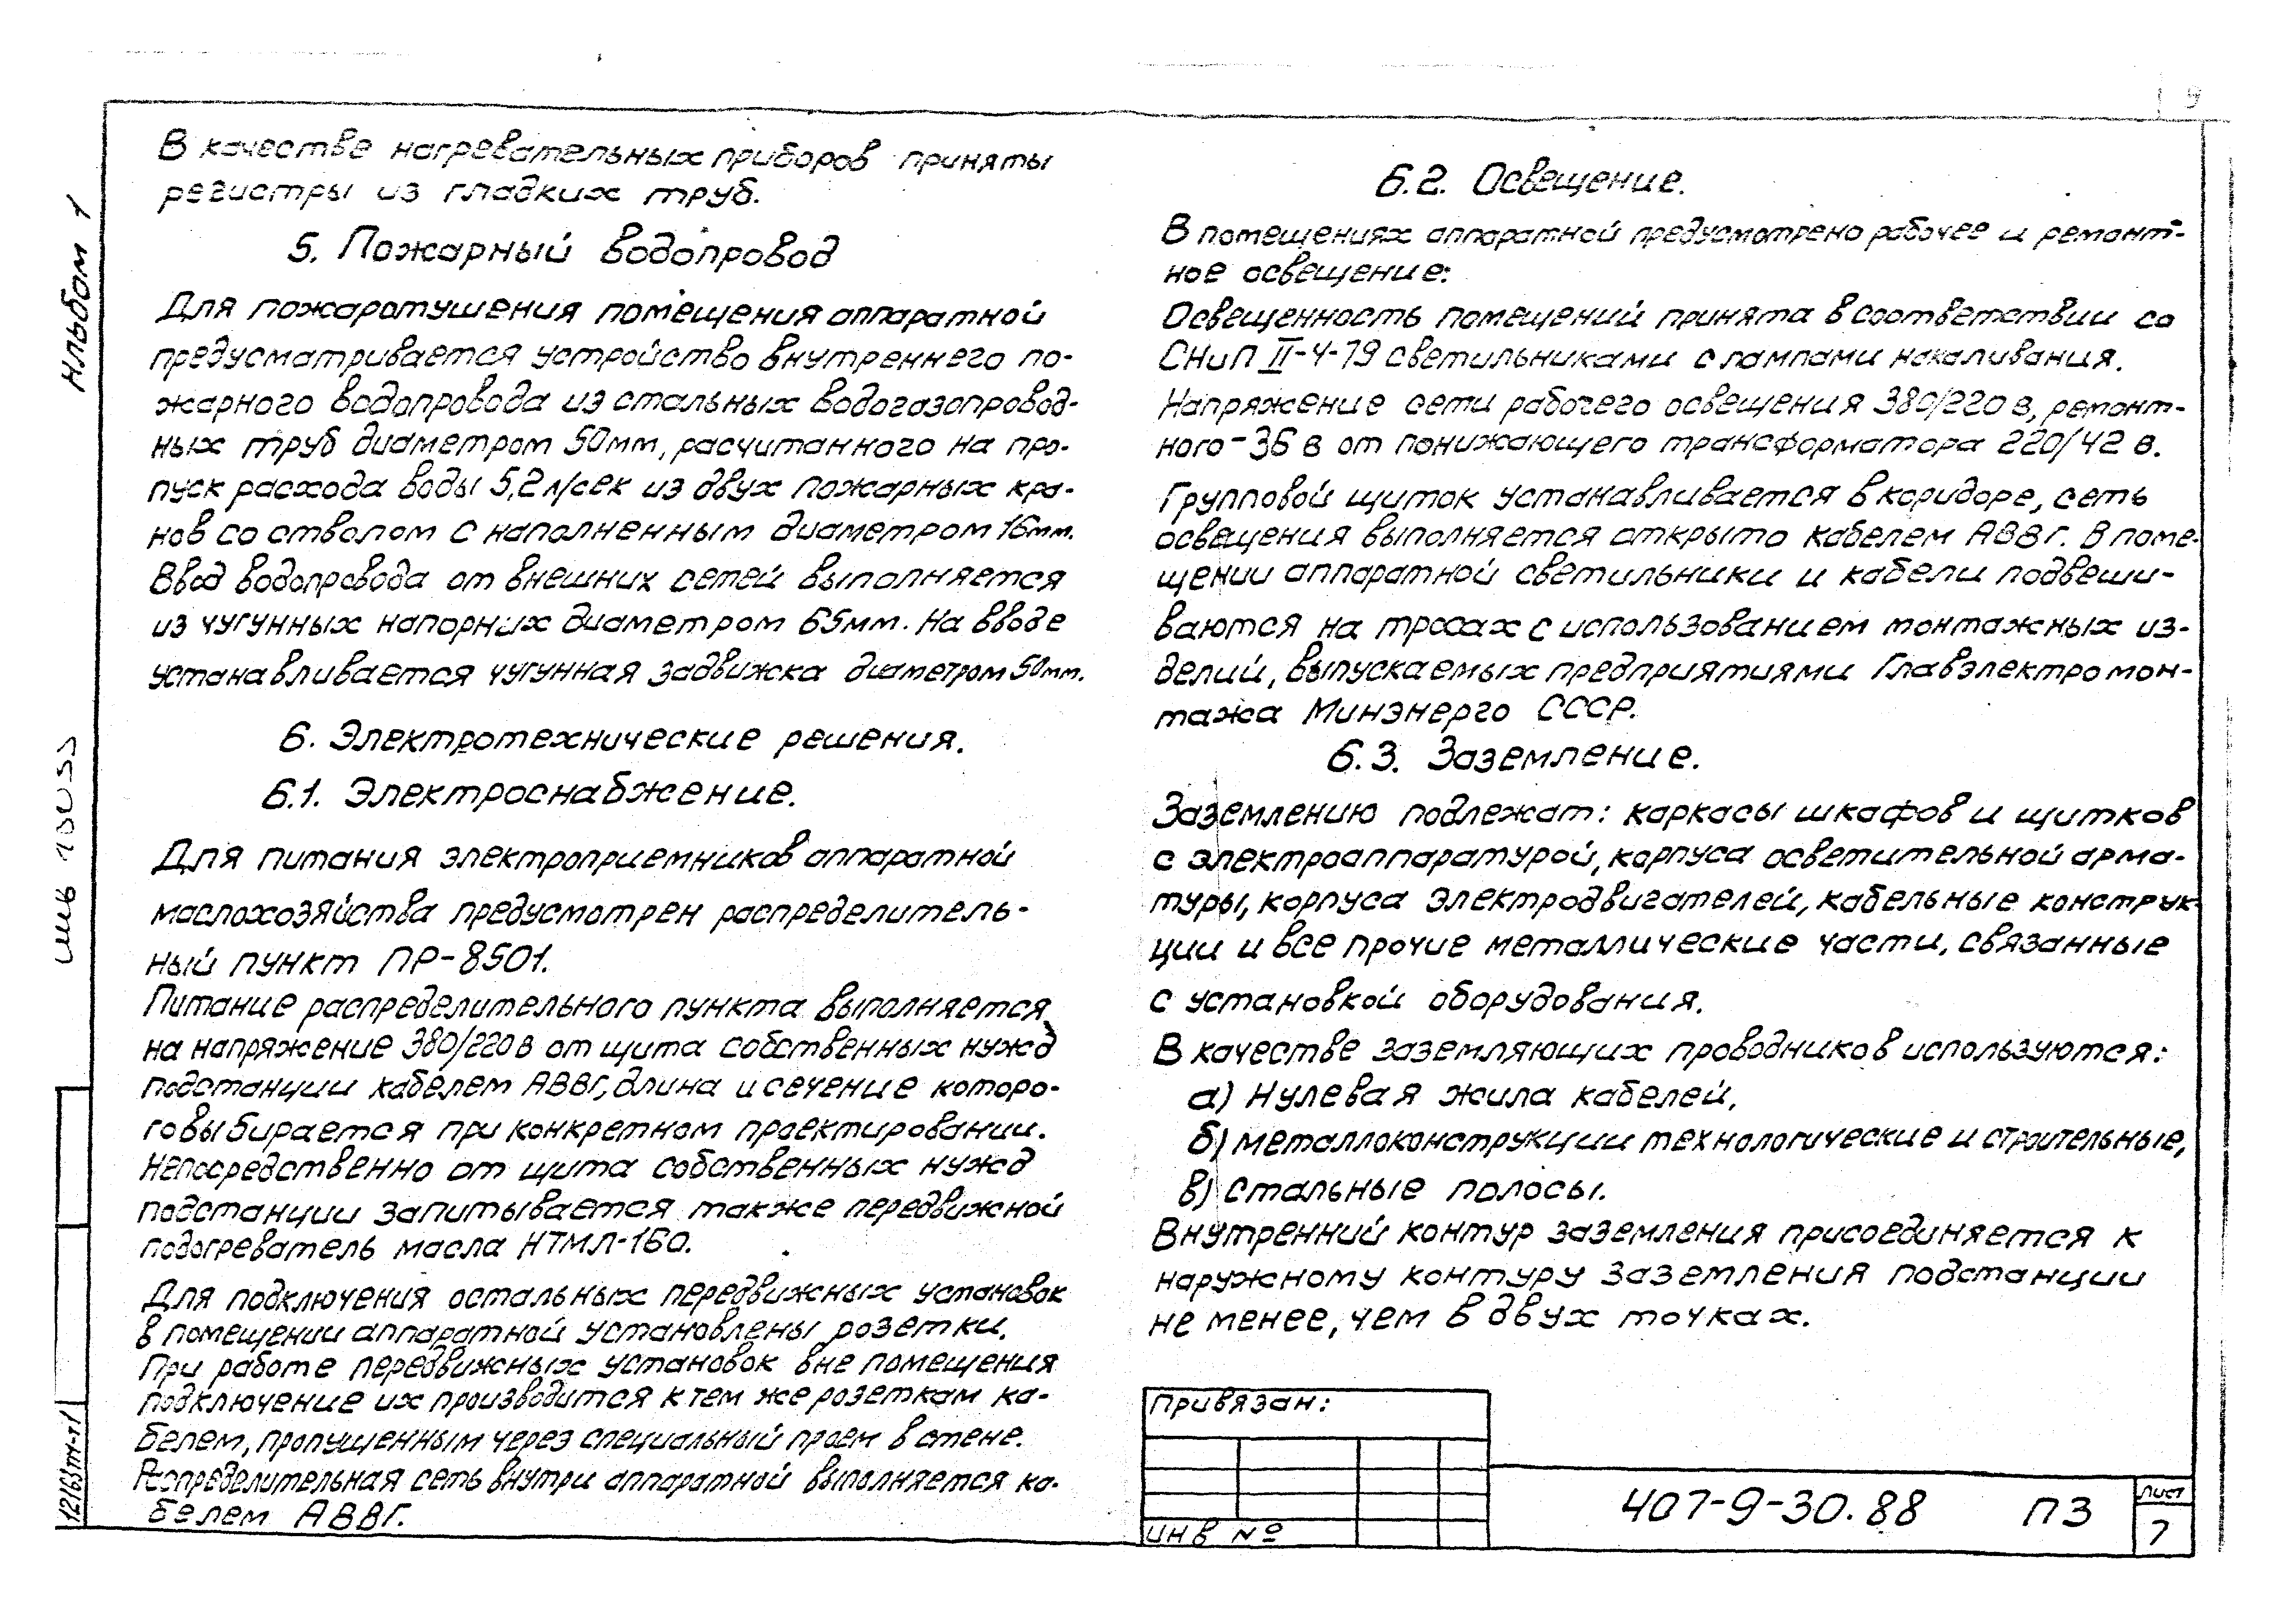 В качестве нагревательных приборов приняты
регистры из гладких труб.
5. Пожарный водопровод
Для пожаротушения помещения аппаратной
предусматривается устройство внутреннего по-
жарного водопровода из стальных водогазопровод-
ных труб диаметром 50мм, расчитанного на про-
пуск расхода воды 5,2 л/сек из двух пожарных кра-
нов со стволом с наполненным диаметром 16мм.
Ввод водопровода от внешних сетей выполняется
из чугунных напорных диаметром 65мм. На вводе
устанавливается чугунная задвижка диаметром 50мм.
6. Электротехнические решения.
6.1. Электроснабжение.
Для питания электроприемников аппаратной
маслохозяйства предусмотрен распределитель-
ный пункт ПР-8501.
Питание распределительного пункта выполняется
на напряжение 380/220 в от щита собственных нужд
подстанции кабелем АВВГ, длина и сечение которо-
го выбирается при конкретном проектировании.
Непосредственно от щита собственных нужд
подстанции запитывается также передвижной
подогреватель масла НТМЛ-160.
Для подключения остальных передвижных установок
в помещении аппаратной установлены розетки.
При работе передвижных установок вне помещения
подключение их производится к тем же розеткам ка-
белем, пропущенным через специальный проем в стене.
Распределительная сеть внутри аппаратной выполняется ка-
белем АВВГ.
6.2. Освещение.
В помещениях аппаратной предусмотрено рабочее и ремонт-
ное освещение:
Освещенность помещений принята в соответствии со
СНиП II-4-79 светильниками с лампами накаливания.
Напряжение сети рабочего освещения 380/220 в, ремонт-
ного - 36 в от понижающего трансформатора 220/42 в.
Групповой щиток устанавливается в коридоре, сеть
освещения выполняется открыто кабелем АВВГ. В поме-
щении аппаратной светильники и кабели подвеши-
ваются на тросах с использованием монтажных из-
делий, выпускаемых предприятиями Главэлектромон-
тажа Минэнерго СССР.
6.3. Заземление.
Заземлению подлежат: каркасы шкафов и щитков
с электроаппаратурой, корпуса осветительной арма-
туры, корпуса электродвигателей, кабельные конструк-
ции и все прочие металлические части, связанные
с установкой оборудования.
В качестве заземляющих проводников используются:
а) Нулевая жила кабелей,
б) металлоконструкции технологические и строительные,
в) стальные полосы.
Внутренний контур заземления присоединяется к
наружному контуру заземления подстанции
не менее, чем в двух точках.
Привязан:
инв №
407-9-30.88 ПЗ
лист
7
Альбом 1
12163тм-т1
9